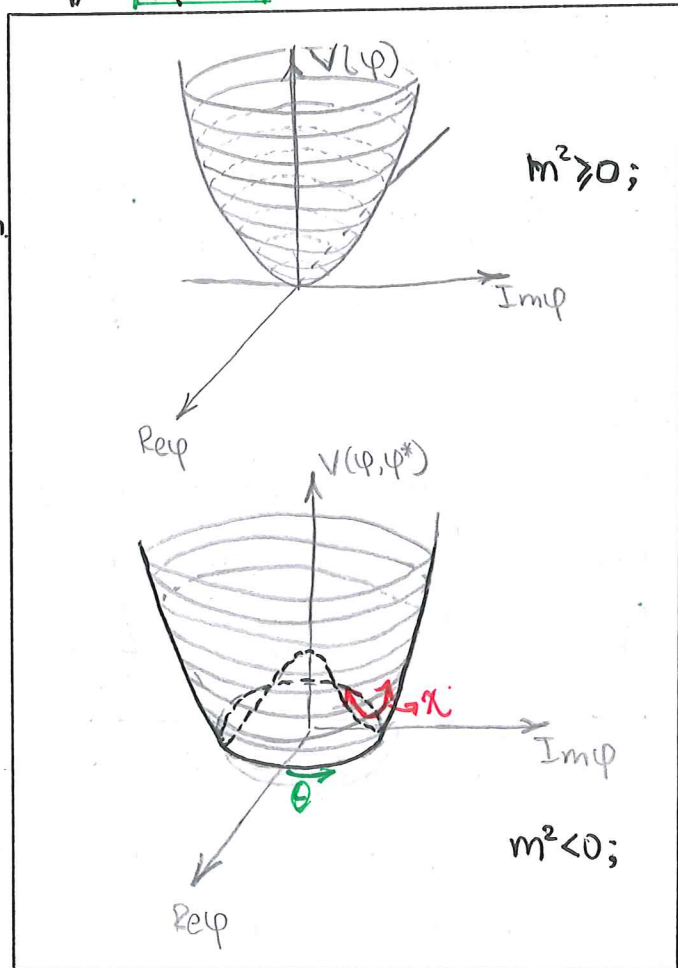 V(φ)
m²⩾0;
n.
Imφ
Reφ
V(φ,φ*)
χ
Imφ
θ
m²<0;
Reφ